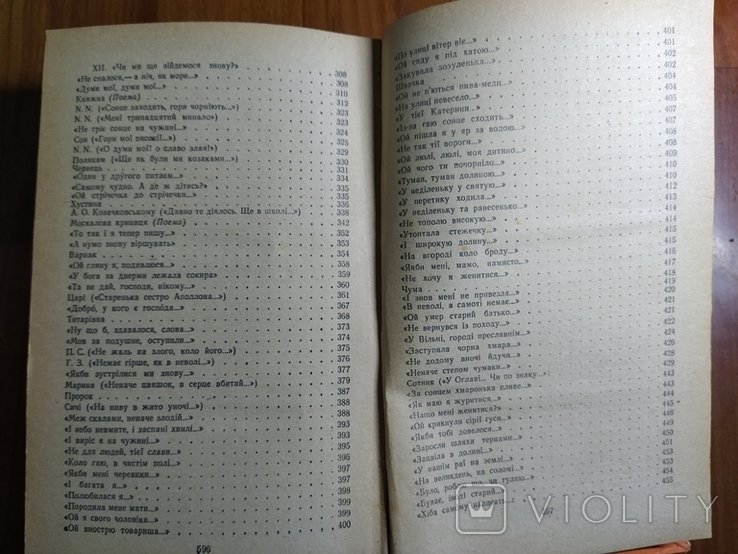 XII. «Чи ми ще зійдемося знову?» 308
«Не спалося,— а ніч, як море...» 308
«Думи мої, думи мої...» 310
Княжна (Поема) 312
N. N. («Сонце заходить, гори чорніють...») 320
N. N. («Мені тринадцятий минало») 323
«Не гріє сонце на чужині» 325
Сон («Гори мої високії...») 328
N. N. («О думи мої! о славо злая!») 329
Полякам («Ще як були ми козаками...») 330
Чернець 331
«Один у другого питаєм...» 334
«Самому чудно. А де ж дітись?» 335
«Ой стрічечка до стрічечки...» 335
Хустина 336
А. О. Козачковському («Давно те діялось. Ще в школі...») 338
Москалева криниця (Поема) 342
«То так і я тепер пишу...» 352
«А нумо знову віршувать» 353
Варнак 354
«Ой гляну я, подивлюся...» 358
«У бога за дверми лежала сокира» 359
«Та не дай, господи, нікому...» 360
Царі («Старенька сестро Аполлона...») 361
«Добро, у кого є господа...» 367
Титарівна 368
«Ну що б, здавалося, слова...» 373
«Мов за подушне, оступили...» 375
П. С. («Не жаль на злого, коло його...») 377
Г. З. («Немає гірше, як в неволі...») 377
«Якби зустрілися ми знову...» 379
Марина («Неначе цвяшок, в серце вбитий...») 379
Пророк 387
Сичі («На ниву в жито уночі...») 388
«Меж скалами, неначе злодій...» 388
«І небо невмите, і заспані хвилі...» 390
«І виріс я на чужині» 394
«Не для людей, тієї слави...» 395
«Коло гаю, в чистім полі...» 396
«Якби мені черевики...» 397
«І багата я...» 397
«Полюбилася я...» 398
«Породила мене мати...» 399
«Ой я свого чоловіка...» 399
«Ой вострю товариша...» 400
596
«По улиці вітер віє...» 401
«Ой сяду я під хатою...» 401
«Закувала зозуленька...» 402
Швачка 402
«Ой не п'ються пива-меди...» 405
«На улиці невесело...» 406
«У тієї Катерини...» 407
«Із-за гаю сонце сходить...» 407
«Ой пішла я у яр за водою...» 407
«Не так тії вороги...» 408
«Ой люлі, люлі, моя дитино...» 409
«Ой чого ти почорніло...» 410
«Туман, туман, долиною...» 411
«У неділеньку у святую...» 412
«У перетику ходила...» 412
«У неділеньку та ранесенько...» 413
«Не тополю високую...» 414
«Утоптала стежечку...» 414
«І широкую долину...» 415
«На вгороді коло броду...» 415
«Якби мені, мамо, намисто...» 416
«Не хочу я женитися...» 417
Чума 418
«І знов мені не привезла...» 419
«В неволі, в самоті немає...» 420
«Ой умер старий батько...» 421
«Не вернувся із походу...» 421
«У Вільні, городі преславнім...» 422
«Заступила чорна хмара...» 424
«Не додому вночі йдучи...» 425
«Неначе степом чумаки...» 429
Сотник («У Оглаві... Чи по знаку...») 429
«За сонцем хмаронька пливе...» 443
«Як маю я журитися...» 444
«Нащо мені женитися?» 444
«Ой крикнули сірії гуси...» 445
«Якби тобі довелося...» 446
«Заросли шляхи тернами...» 450
«Зацвіла в долині...» 450
«У нашім раї на землі...» 451
«На великдень, на соломі...» 453
«Було, роблю що, чи гуляю...» 454
«Буває, іноді старий...» 454
«Хіба самому написать...» 455
597
VIOLITY